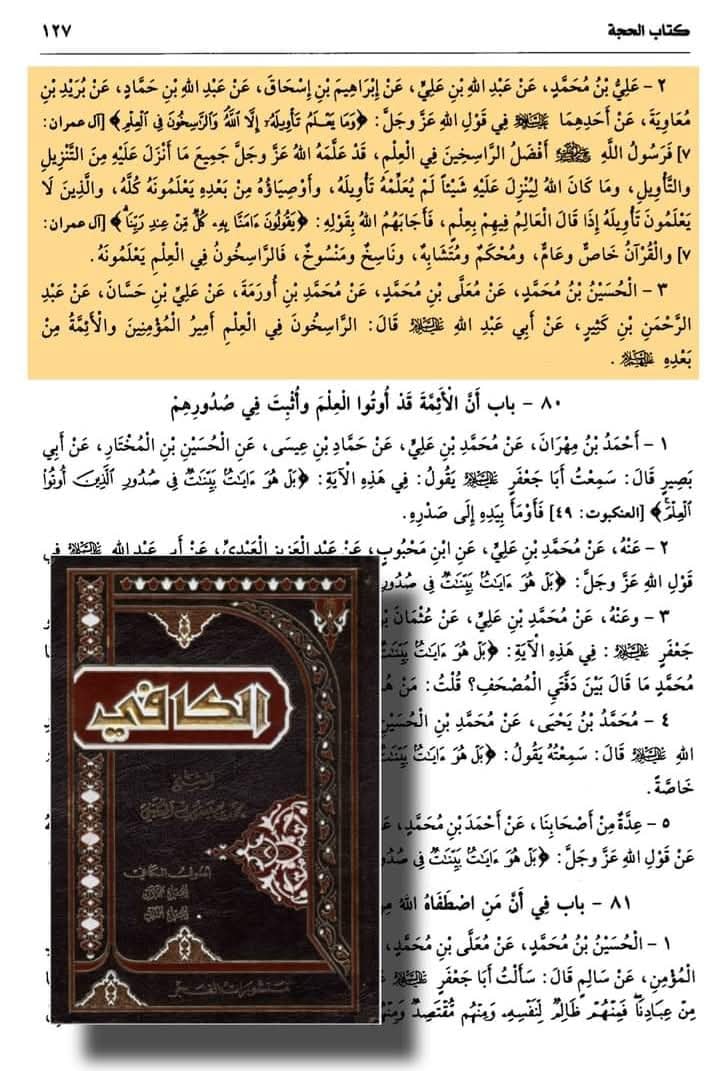 كتاب الحجة
١٢٧
٢ - عَلِيُّ بْنُ مُحَمَّدٍ، عَنْ عَبْدِ اللهِ بْنِ عَلِيٍّ، عَنْ إِبْرَاهِيمَ بْنِ إِسْحَاقَ، عَنْ عَبْدِ اللهِ بْنِ حَمَّادٍ، عَنْ بُرَيْدِ بْنِ
مُعَاوِيَةَ، عَنْ أَحَدِهِمَا عليهما السلام فِي قَوْلِ اللهِ عَزَّ وَجَلَّ: ﴿وَمَا يَعْلَمُ تَأْوِيلَهُۥٓ إِلَّا ٱللَّهُ وَٱلرَّٰسِخُونَ فِى ٱلْعِلْمِ﴾ [آل عمران:
٧] فَرَسُولُ اللهِ ﷺ أَفْضَلُ الرَّاسِخِينَ فِي الْعِلْمِ، قَدْ عَلَّمَهُ اللهُ عَزَّ وَجَلَّ جَمِيعَ مَا أَنْزَلَ عَلَيْهِ مِنَ التَّنْزِيلِ
والتَّأْوِيلِ، ومَا كَانَ اللهُ لِيُنْزِلَ عَلَيْهِ شَيْئاً لَمْ يُعَلِّمْهُ تَأْوِيلَهُ، وأَوْصِيَاؤُهُ مِنْ بَعْدِهِ يَعْلَمُونَهُ كُلَّهُ، والَّذِينَ لَا
يَعْلَمُونَ تَأْوِيلَهُ إِذَا قَالَ الْعَالِمُ فِيهِمْ بِعِلْمٍ، فَأَجَابَهُمُ اللهُ بِقَوْلِهِ: ﴿يَقُولُونَ ءَامَنَّا بِهِۦ كُلٌّ مِّنْ عِندِ رَبِّنَا﴾ [آل عمران:
٧] والْقُرْآنُ خَاصٌّ وعَامٌّ، ومُحْكَمٌ ومُتَشَابِهٌ، ونَاسِخٌ ومَنْسُوخٌ، فَالرَّاسِخُونَ فِي الْعِلْمِ يَعْلَمُونَهُ.
٣ - الْحُسَيْنُ بْنُ مُحَمَّدٍ، عَنْ مُعَلَّى بْنِ مُحَمَّدٍ، عَنْ مُحَمَّدِ بْنِ أُورَمَةَ، عَنْ عَلِيِّ بْنِ حَسَّانَ، عَنْ عَبْدِ
الرَّحْمَنِ بْنِ كَثِيرٍ، عَنْ أَبِي عَبْدِ اللهِ عليه السلام قَالَ: الرَّاسِخُونَ فِي الْعِلْمِ أَمِيرُ الْمُؤْمِنِينَ والْأَئِمَّةُ مِنْ
بَعْدِهِ عليهم السلام.
٨٠ - باب أَنَّ الْأَئِمَّةَ قَدْ أُوتُوا الْعِلْمَ وأُثْبِتَ فِي صُدُورِهِمْ
١ - أَحْمَدُ بْنُ مِهْرَانَ، عَنْ مُحَمَّدِ بْنِ عَلِيٍّ، عَنْ حَمَّادِ بْنِ عِيسَى، عَنِ الْحُسَيْنِ بْنِ الْمُخْتَارِ، عَنْ أَبِي
بَصِيرٍ قَالَ: سَمِعْتُ أَبَا جَعْفَرٍ عليه السلام يَقُولُ: فِي هَذِهِ الْآيَةِ: ﴿بَلْ هُوَ ءَايَٰتٌۢ بَيِّنَٰتٌ فِى صُدُورِ ٱلَّذِينَ أُوتُوا۟
ٱلْعِلْمَ﴾ [العنكبوت: ٤٩] فَأَوْمَأَ بِيَدِهِ إِلَى صَدْرِهِ.
٢ - عَنْهُ، عَنْ مُحَمَّدِ بْنِ عَلِيٍّ، عَنِ ابْنِ مَحْبُوبٍ، عَنْ عَبْدِ الْعَزِيزِ الْعَبْدِيِّ، عَنْ أَبِي عَبْدِ اللهِ عليه السلام فِي
قَوْلِ اللهِ عَزَّ وَجَلَّ: ﴿بَلْ هُوَ ءَايَٰتٌۢ بَيِّنَٰتٌ فِى صُدُورِ
٣ - وعَنْهُ، عَنْ مُحَمَّدِ بْنِ عَلِيٍّ، عَنْ عُثْمَانَ بْنِ
جَعْفَرٍ عليه السلام: فِي هَذِهِ الْآيَةِ: ﴿بَلْ هُوَ ءَايَٰتٌۢ بَيِّنَٰتٌ
مُحَمَّدٍ مَا قَالَ بَيْنَ دَفَّتَيِ الْمُصْحَفِ؟ قُلْتُ: مَنْ
٤ - مُحَمَّدُ بْنُ يَحْيَى، عَنْ مُحَمَّدِ بْنِ الْحُسَيْنِ
اللهِ عليه السلام قَالَ: سَمِعْتُهُ يَقُولُ: ﴿بَلْ هُوَ ءَايَٰتٌۢ بَيِّنَٰتٌ
خَاصَّةً.
٥ - عِدَّةٌ مِنْ أَصْحَابِنَا، عَنْ أَحْمَدَ بْنِ مُحَمَّدٍ،
عَنْ قَوْلِ اللهِ عَزَّ وَجَلَّ: ﴿بَلْ هُوَ ءَايَٰتٌۢ بَيِّنَٰتٌ فِى
٨١ - باب فِي أَنَّ مَنِ اصْطَفَاهُ اللهُ
١ - الْحُسَيْنُ بْنُ مُحَمَّدٍ، عَنْ مُعَلَّى بْنِ مُحَمَّدٍ،
الْمُؤْمِنِ، عَنْ سَالِمٍ قَالَ: سَأَلْتُ أَبَا جَعْفَرٍ عليه السلام
مِنْ عِبَادِنَا فَمِنْهُمْ ظَالِمٌ لِّنَفْسِهِۦ وَمِنْهُم مُّقْتَصِدٌ وَمِنْهُمْ
الكافي